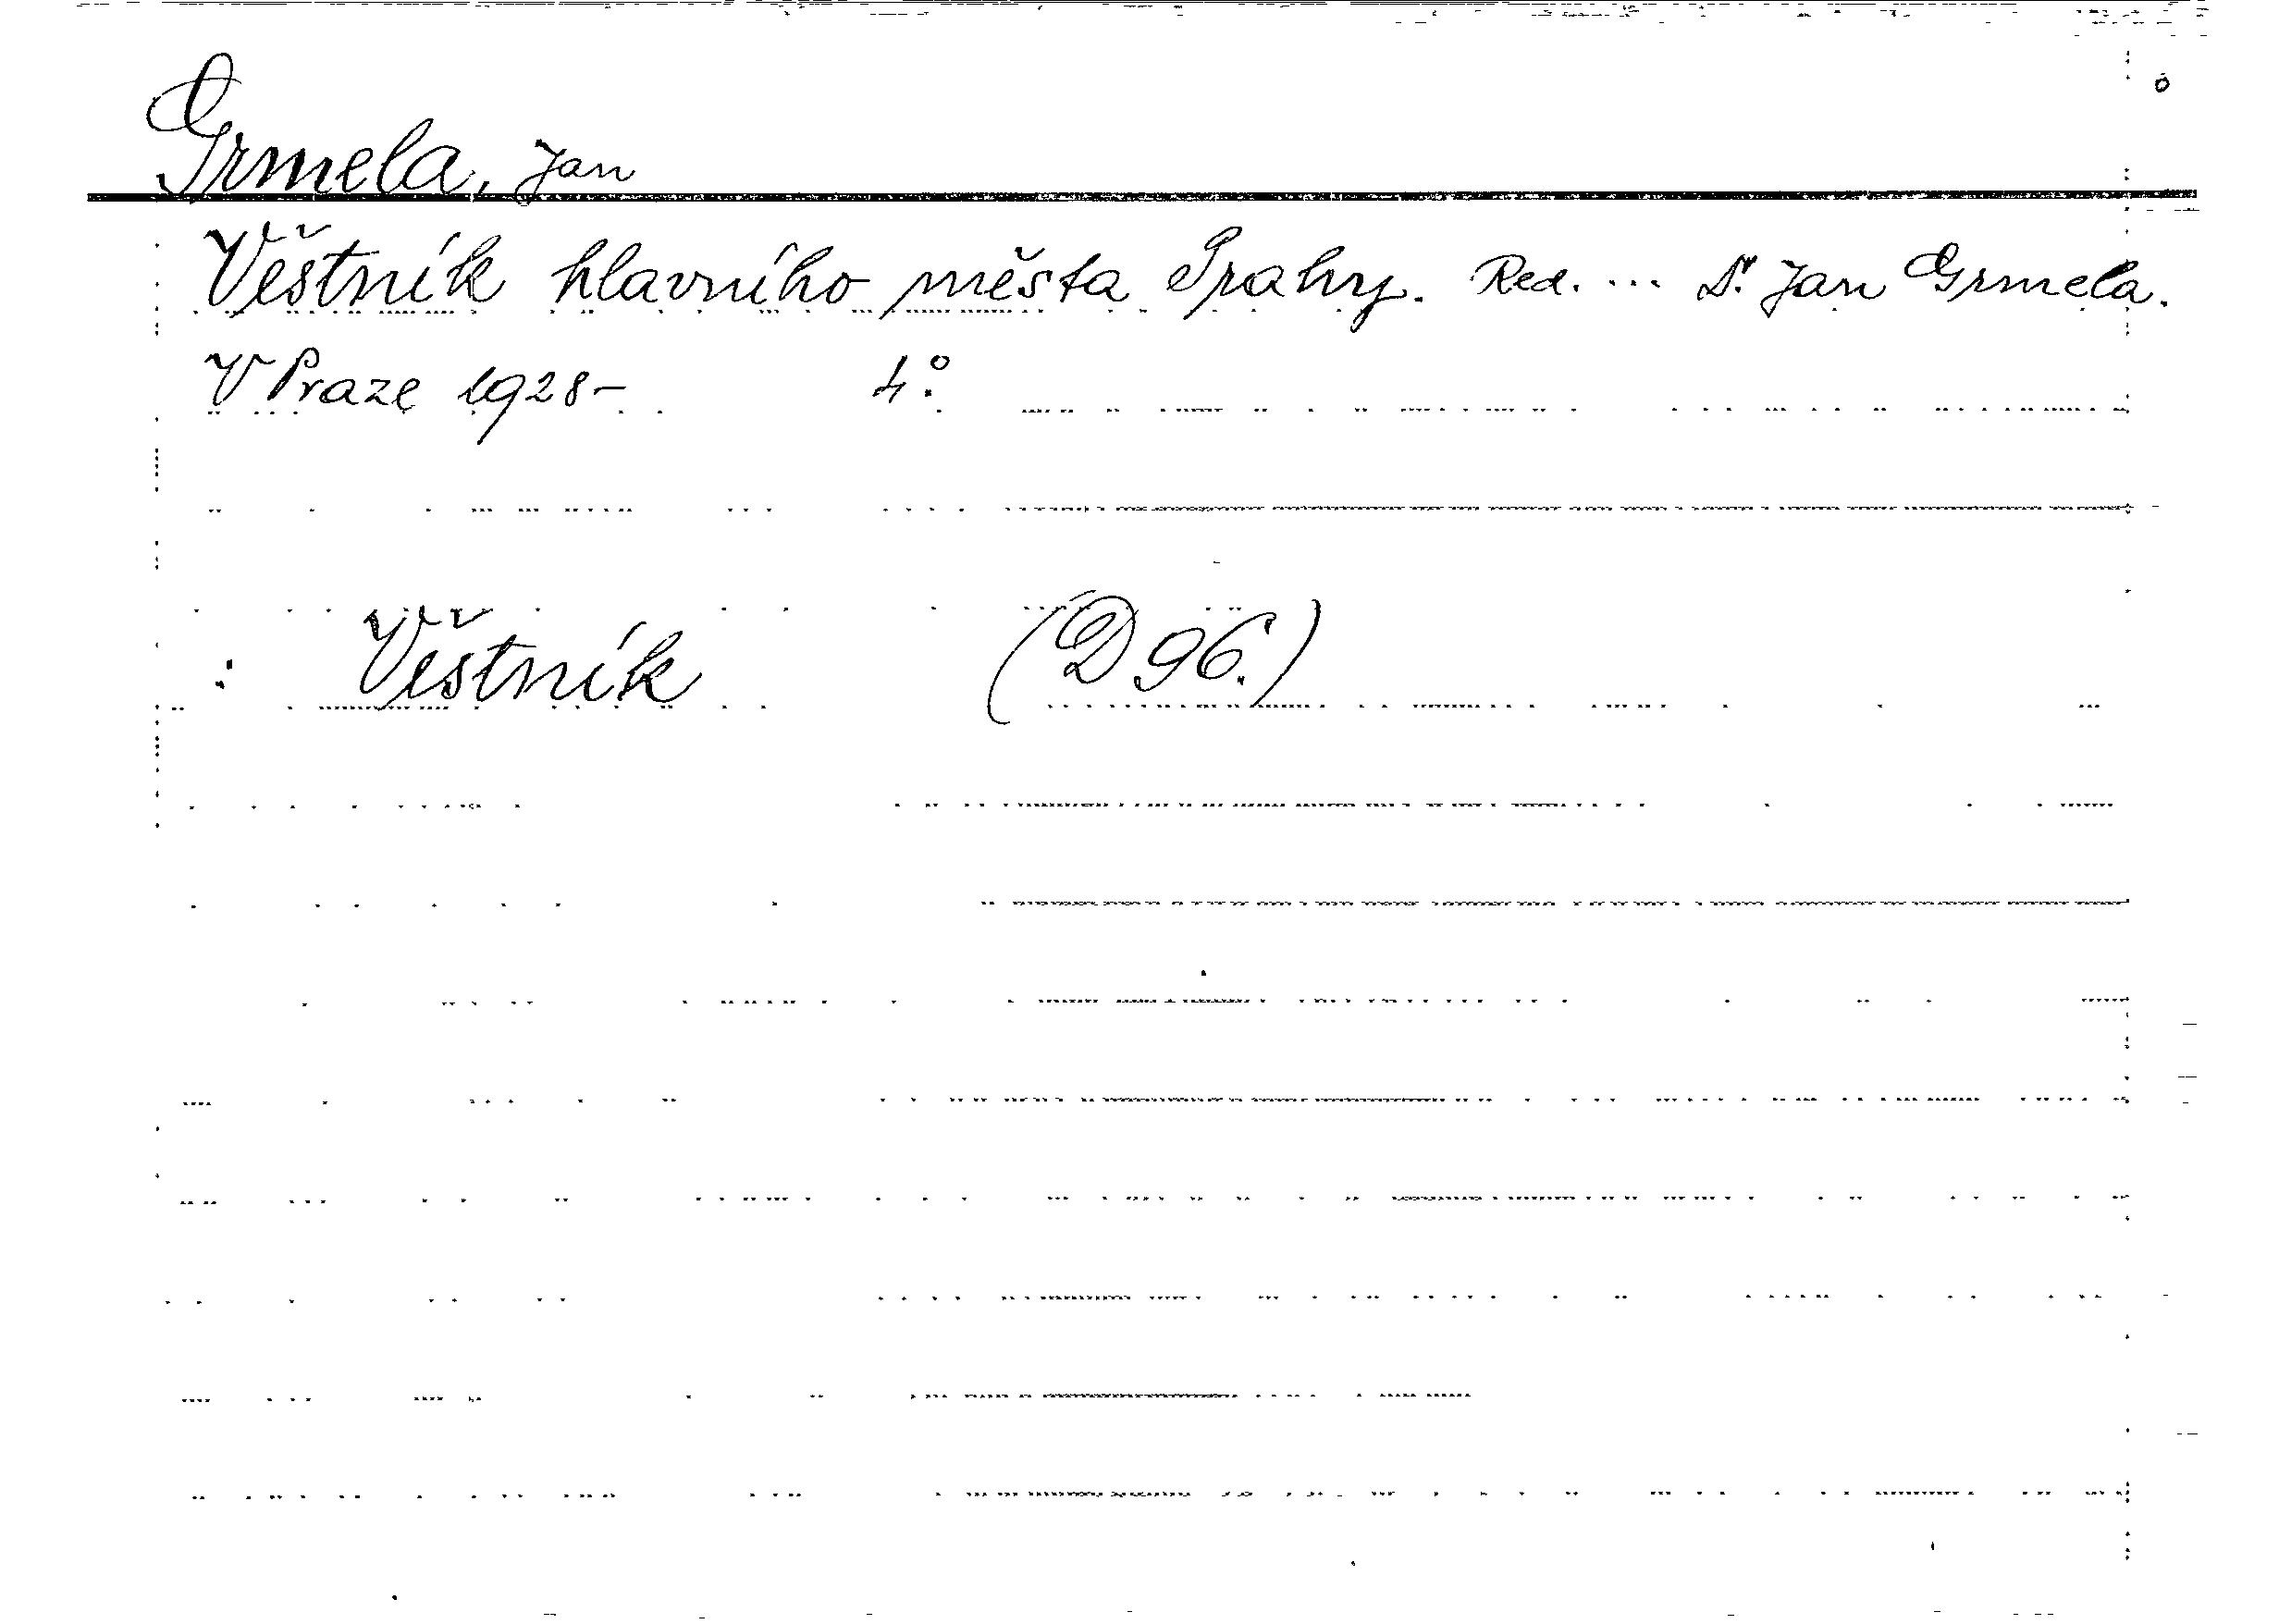 Grmela, Jan
Věstník hlavního města Prahy. Red. ... Dr. Jan Grmela.
V Praze 1928- 4°.
: Věstník (D 96.)